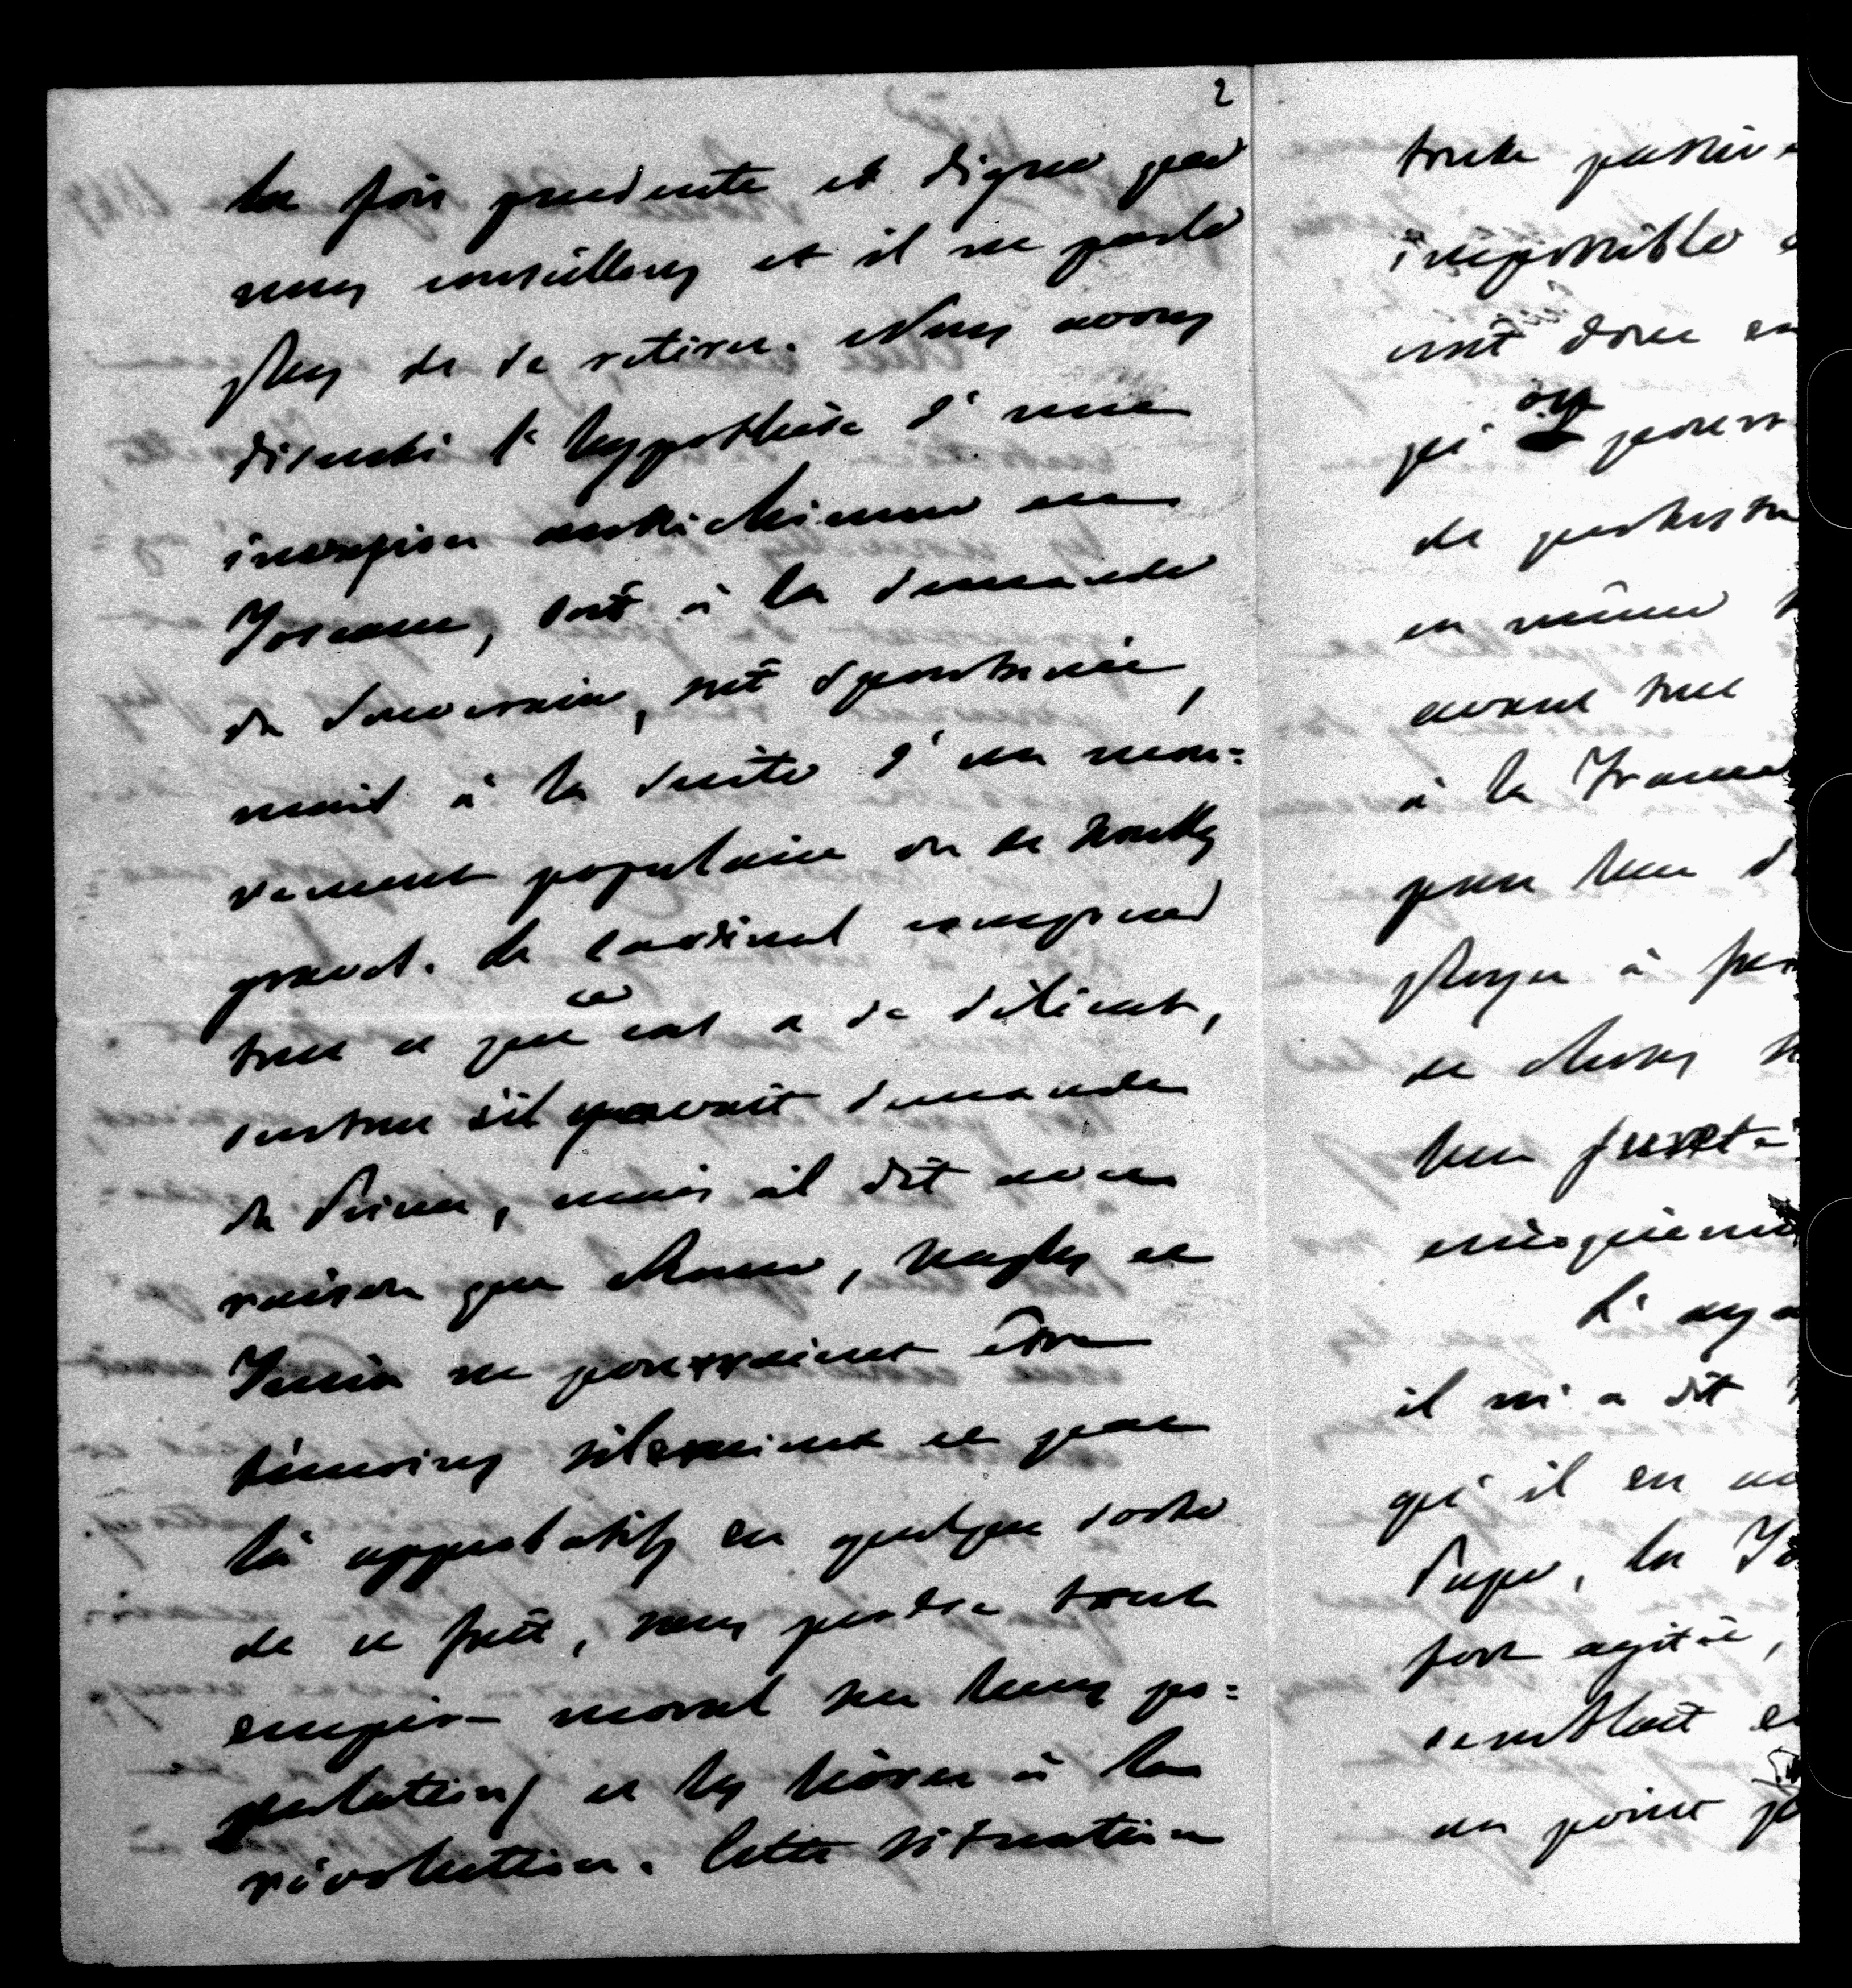 2
la fois prudente et digne que
nous conseillons et il ne parle
plus de se retirer. Nous avons
discuté l'hypothèse d'une
invasion autrichienne en
Toscane, soit à la demande
du souverain, soit spontanée,
mais à la suite d'un mou=
vement populaire ou de troubles
graves. Le Cardinal comprend
tout ce que ce cas a de délicat,
surtout s'il y avait demande
du Prince, mais il dit avec
raison que Rome, Naples et
Turin ne pourraient être
témoins silencieux et par
là approbatifs en quelque sorte
de ce fait, sans perdre tout
empire moral sur leurs po=
pulations et les livrer à la
révolution. Cette situation
toute passive
impossible
soit donc en
qu'on
de protester
en même
avant tout
à la France
pour leur
ployer à
de choses
leur
L'
il m'a dit
qu'il en
Pape, la
fort agitée,
semblait
au point